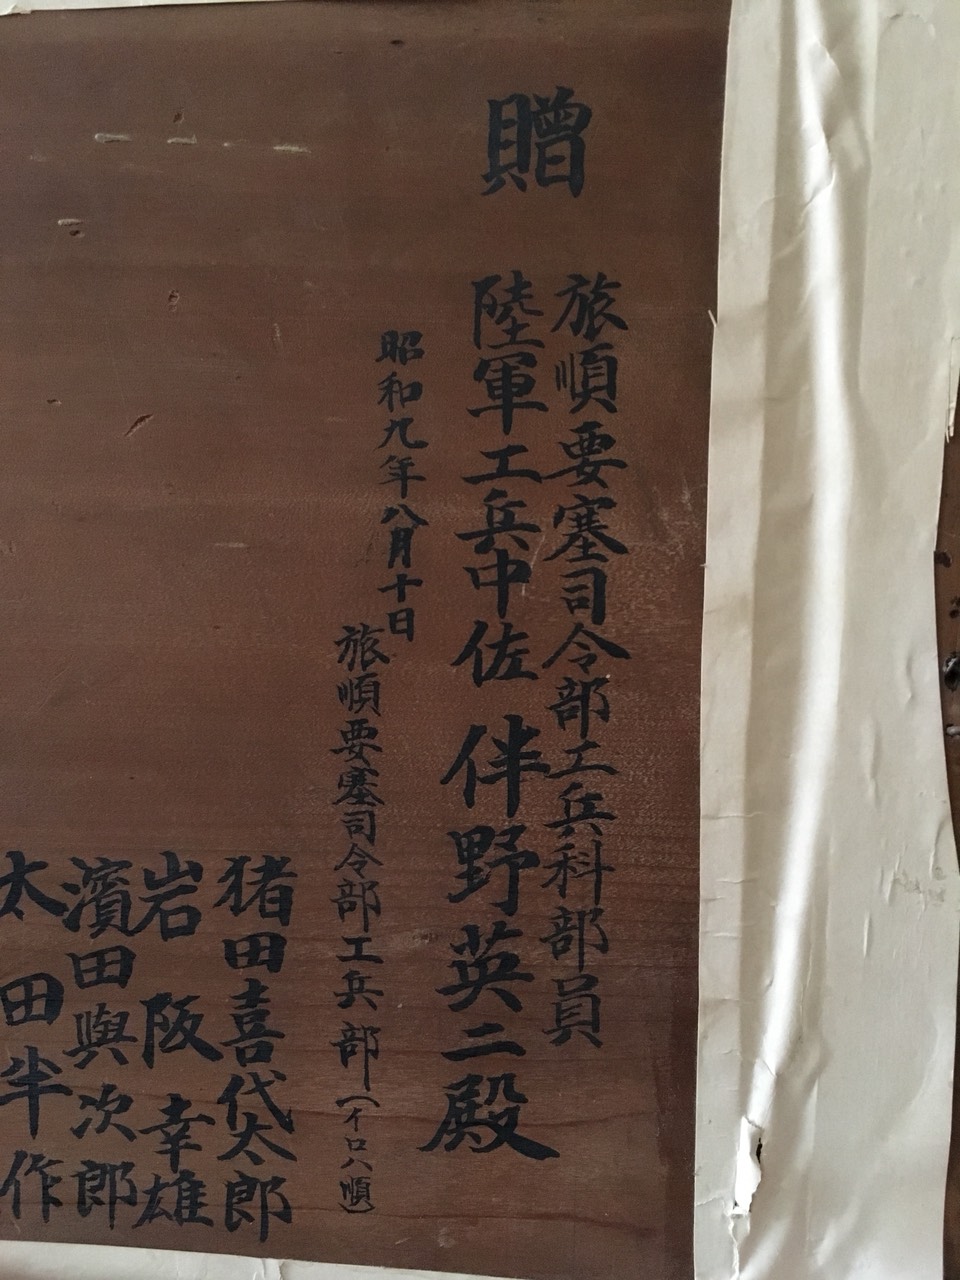 贈
旅順要塞司令部工兵科部員
陸軍工兵中佐 伴野英二殿
昭和九年八月十日
旅順要塞司令部工兵部(イロハ順)
猪田喜代太郎
岩阪幸雄
濱田與次郎
太田半作